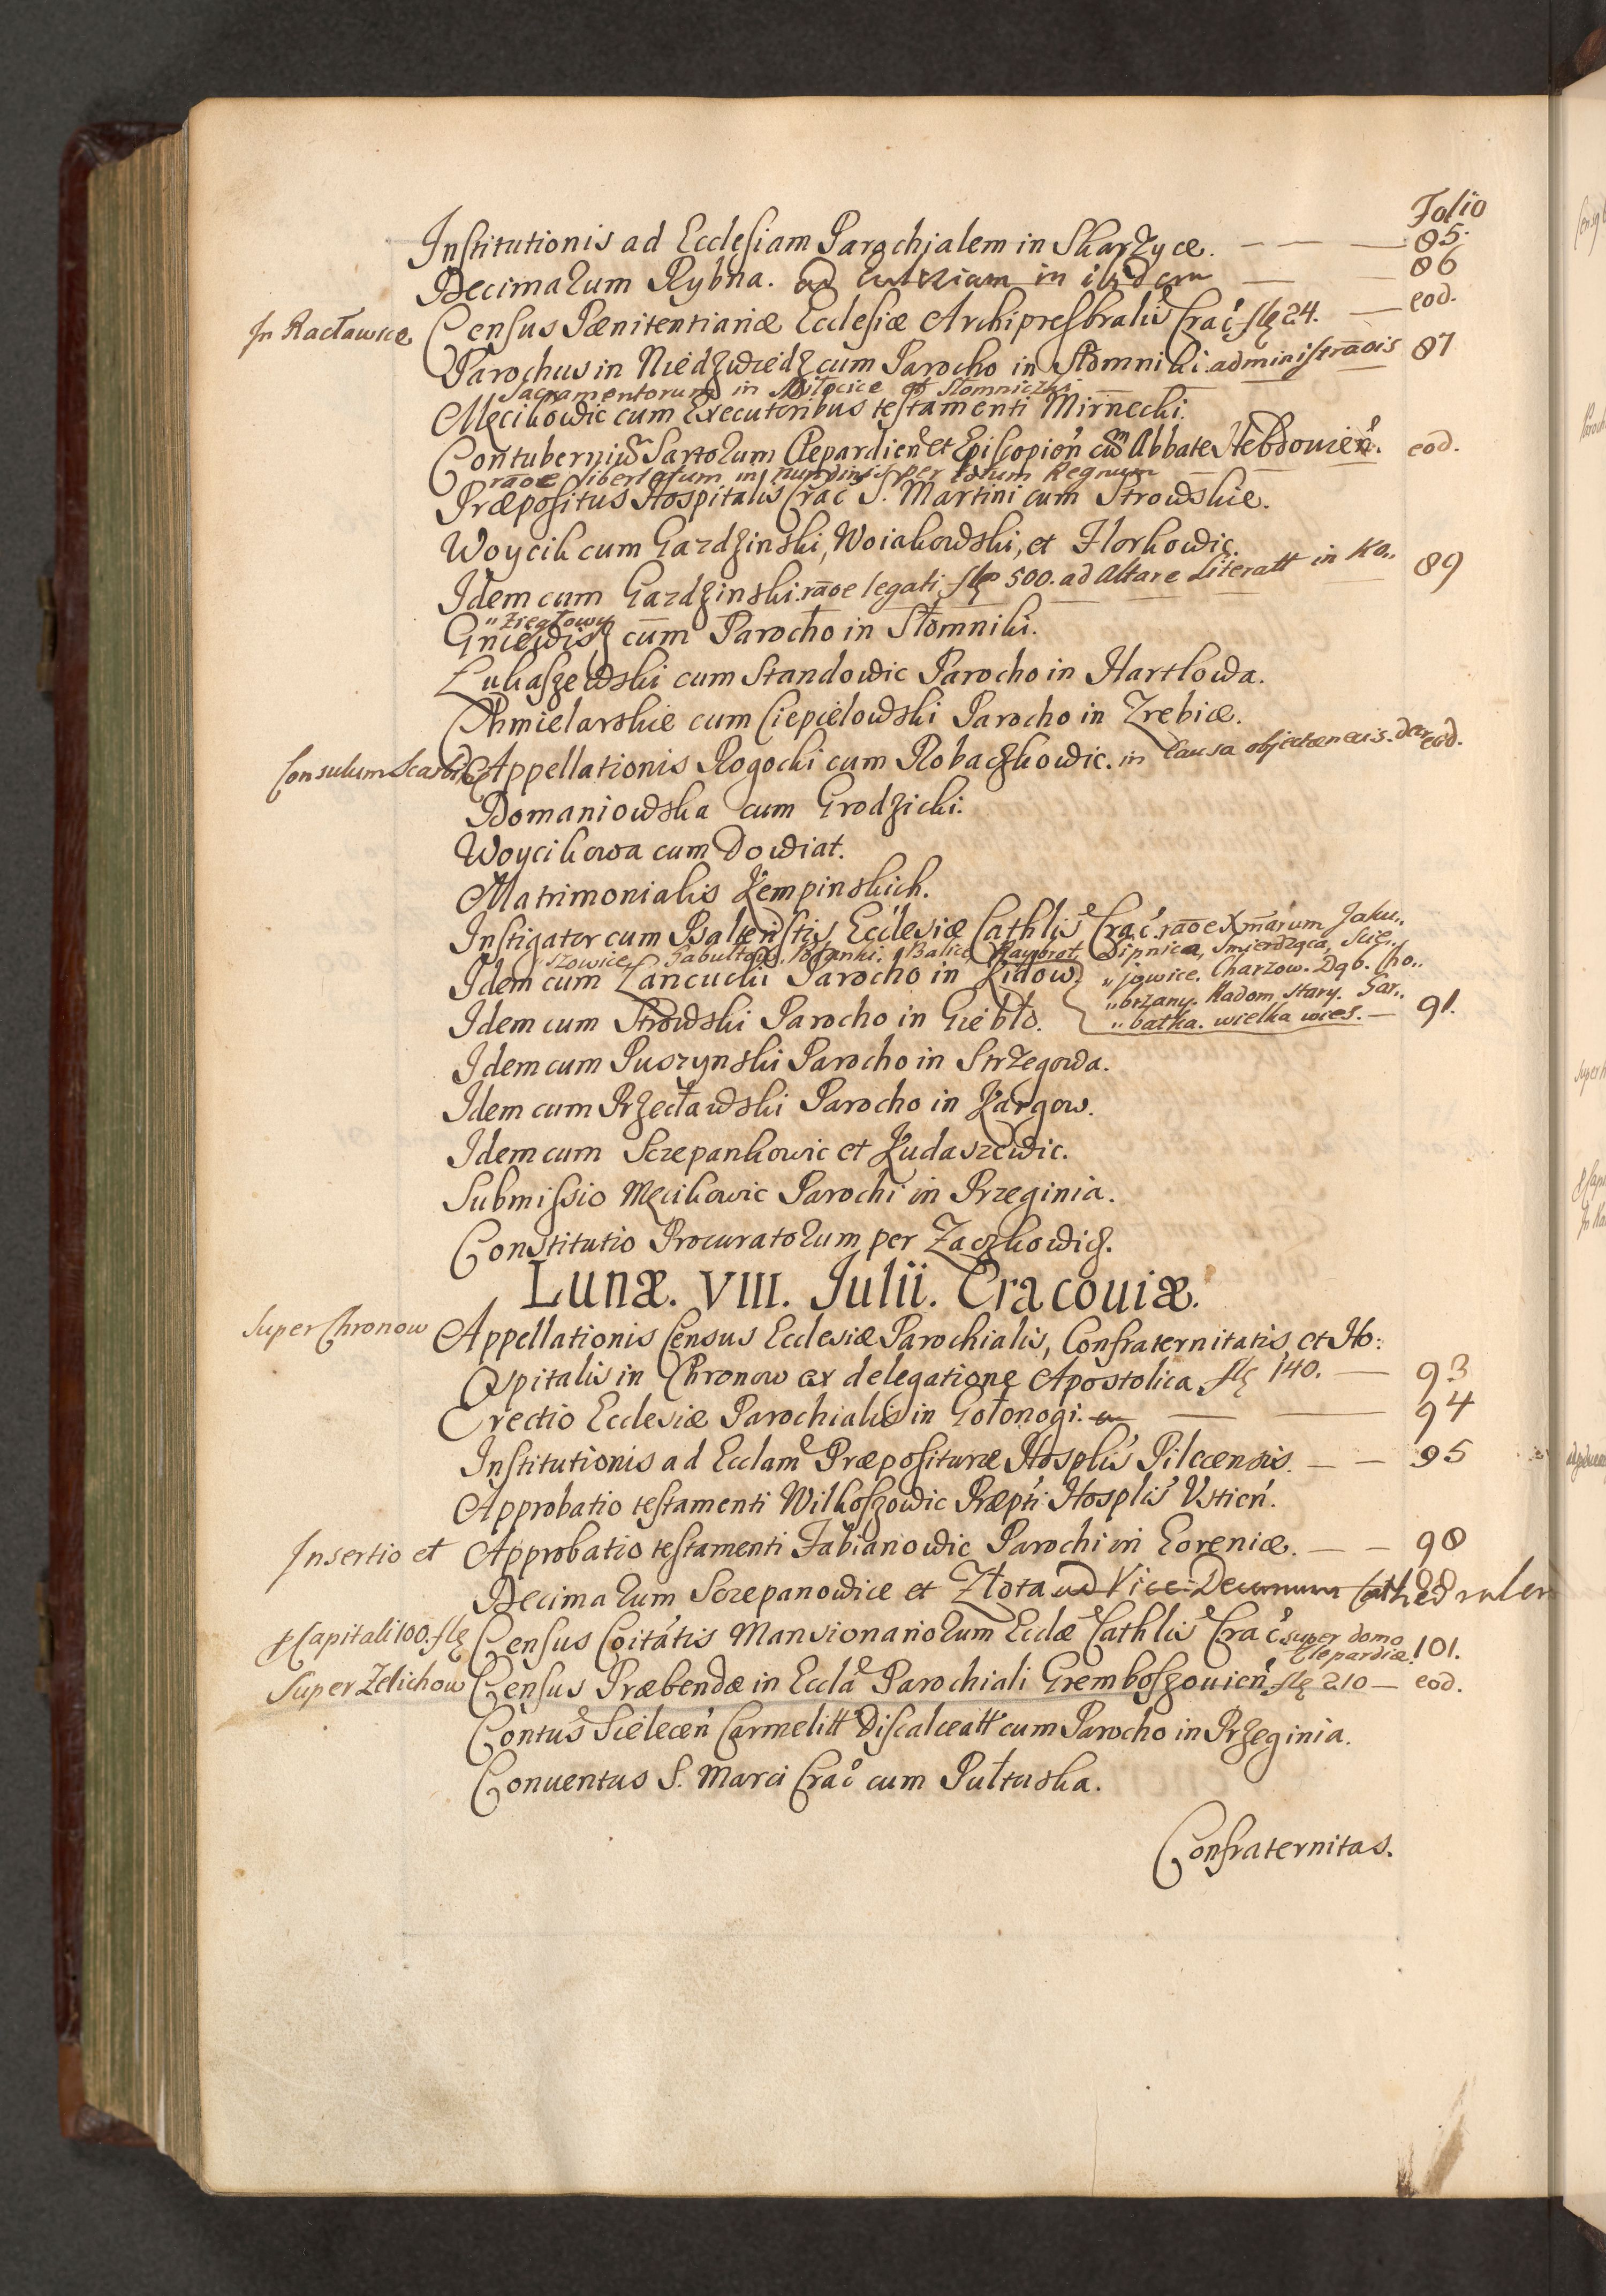 Folio
Institutionis ad Ecclesiam Parochialem in Skarzyce. 85.
Decimarum Rybna. ad in ibidem 86
In Racławice Census Pænitentiariæ Ecclesiæ Archipresbralis Crac flę 24. eod.
Parochus in Niedzwiedz cum Parocho in Słomniki. administraois 87
Sacramentorum in Miłocice et Słomniczki
Męcikowic cum Executoribus testamenti Mirnecki.
Contubernium Sartorum Clepardien et Episcopien cum Abbate Hebdouien. eod.
raoe libertatum in nundinis per totum Regnum
Præpositus Hospitalis Crac S. Martini cum Strowskie.
Woycik cum Gardzinski, Woiakowski, et Florkowic.
Idem cum Gardzinski. raoe legati flę 500. ad Altare Literatt in Ko„ 89
„zregłowy
Gniewisz cum Parocho in Słomniki.
Łukaszewski cum Standowic Parocho in Harklowa.
Chmielarskie cum Ciepielowski Parocho in Zrebice.
Consulum Scarbic Appellationis Rogocki cum Robaczkowic. in Causa eod.
Domaniowska cum Grodzicki.
Woycikowa cum Dowiat.
Matrimonialis Kempinskich.
Instigator cum Psalteristis Ecclesiæ Cathlis Crac. raoe Xmarum Jaku„
„szowice, Sabultow, Balice Lipnica, Smierdząca, Scie„
Idem cum Łancucki Parocho in Kidow. „jowice. Charzow. Dąb. Cho„
„brzany. Radom stary. Gar„
Idem cum Strowski Parocho in Giebło. „batka. wielka wies. 91.
Idem cum Puszynski Parocho in Strzegowa.
Idem cum Przecławski Parocho in Kargow.
Idem cum Szczepankowic et Kudaszewic.
Submissio Męcikowic Parochi in Przeginia.
Constitutio Procuratorum per Zaczkowicz.
Lunæ. VIII. Julii. Cracouiæ.
Super Chronow Appellationis Census Ecclesiæ Parochialis, Confraternitatis, et Ho:
spitalis in Chronow ex delegatione Apostolica, flę 140. 93
Erectio Ecclesiæ Parochialis in Gołonogi. 94
Institutionis ad Ecclam Præposituræ Hosplis Pilecensis. 95
Approbatio testamenti Wilkoszowic Præpti Hosplis Vstien.
Insertio et Approbatio testamenti Fabianowic Parochi in Coreniæ. 98
Decimarum Sczepanowice et Złota ad Vice-Decanum Cathedralem
Capitali 100. flę Census Coitatis Mansionariorum Ecclæ Cathlis Crac. super domo
Clepardiæ. 101.
Super Zelichow Census Præbendæ in Eccla Parochiali Gremboszouien flę 210 eod.
Contus Scielecen Carmelitt Discalceatt cum Parocho in Przeginia.
Conuentus S. Marci Crac cum Pułtuska.
Confraternitas.